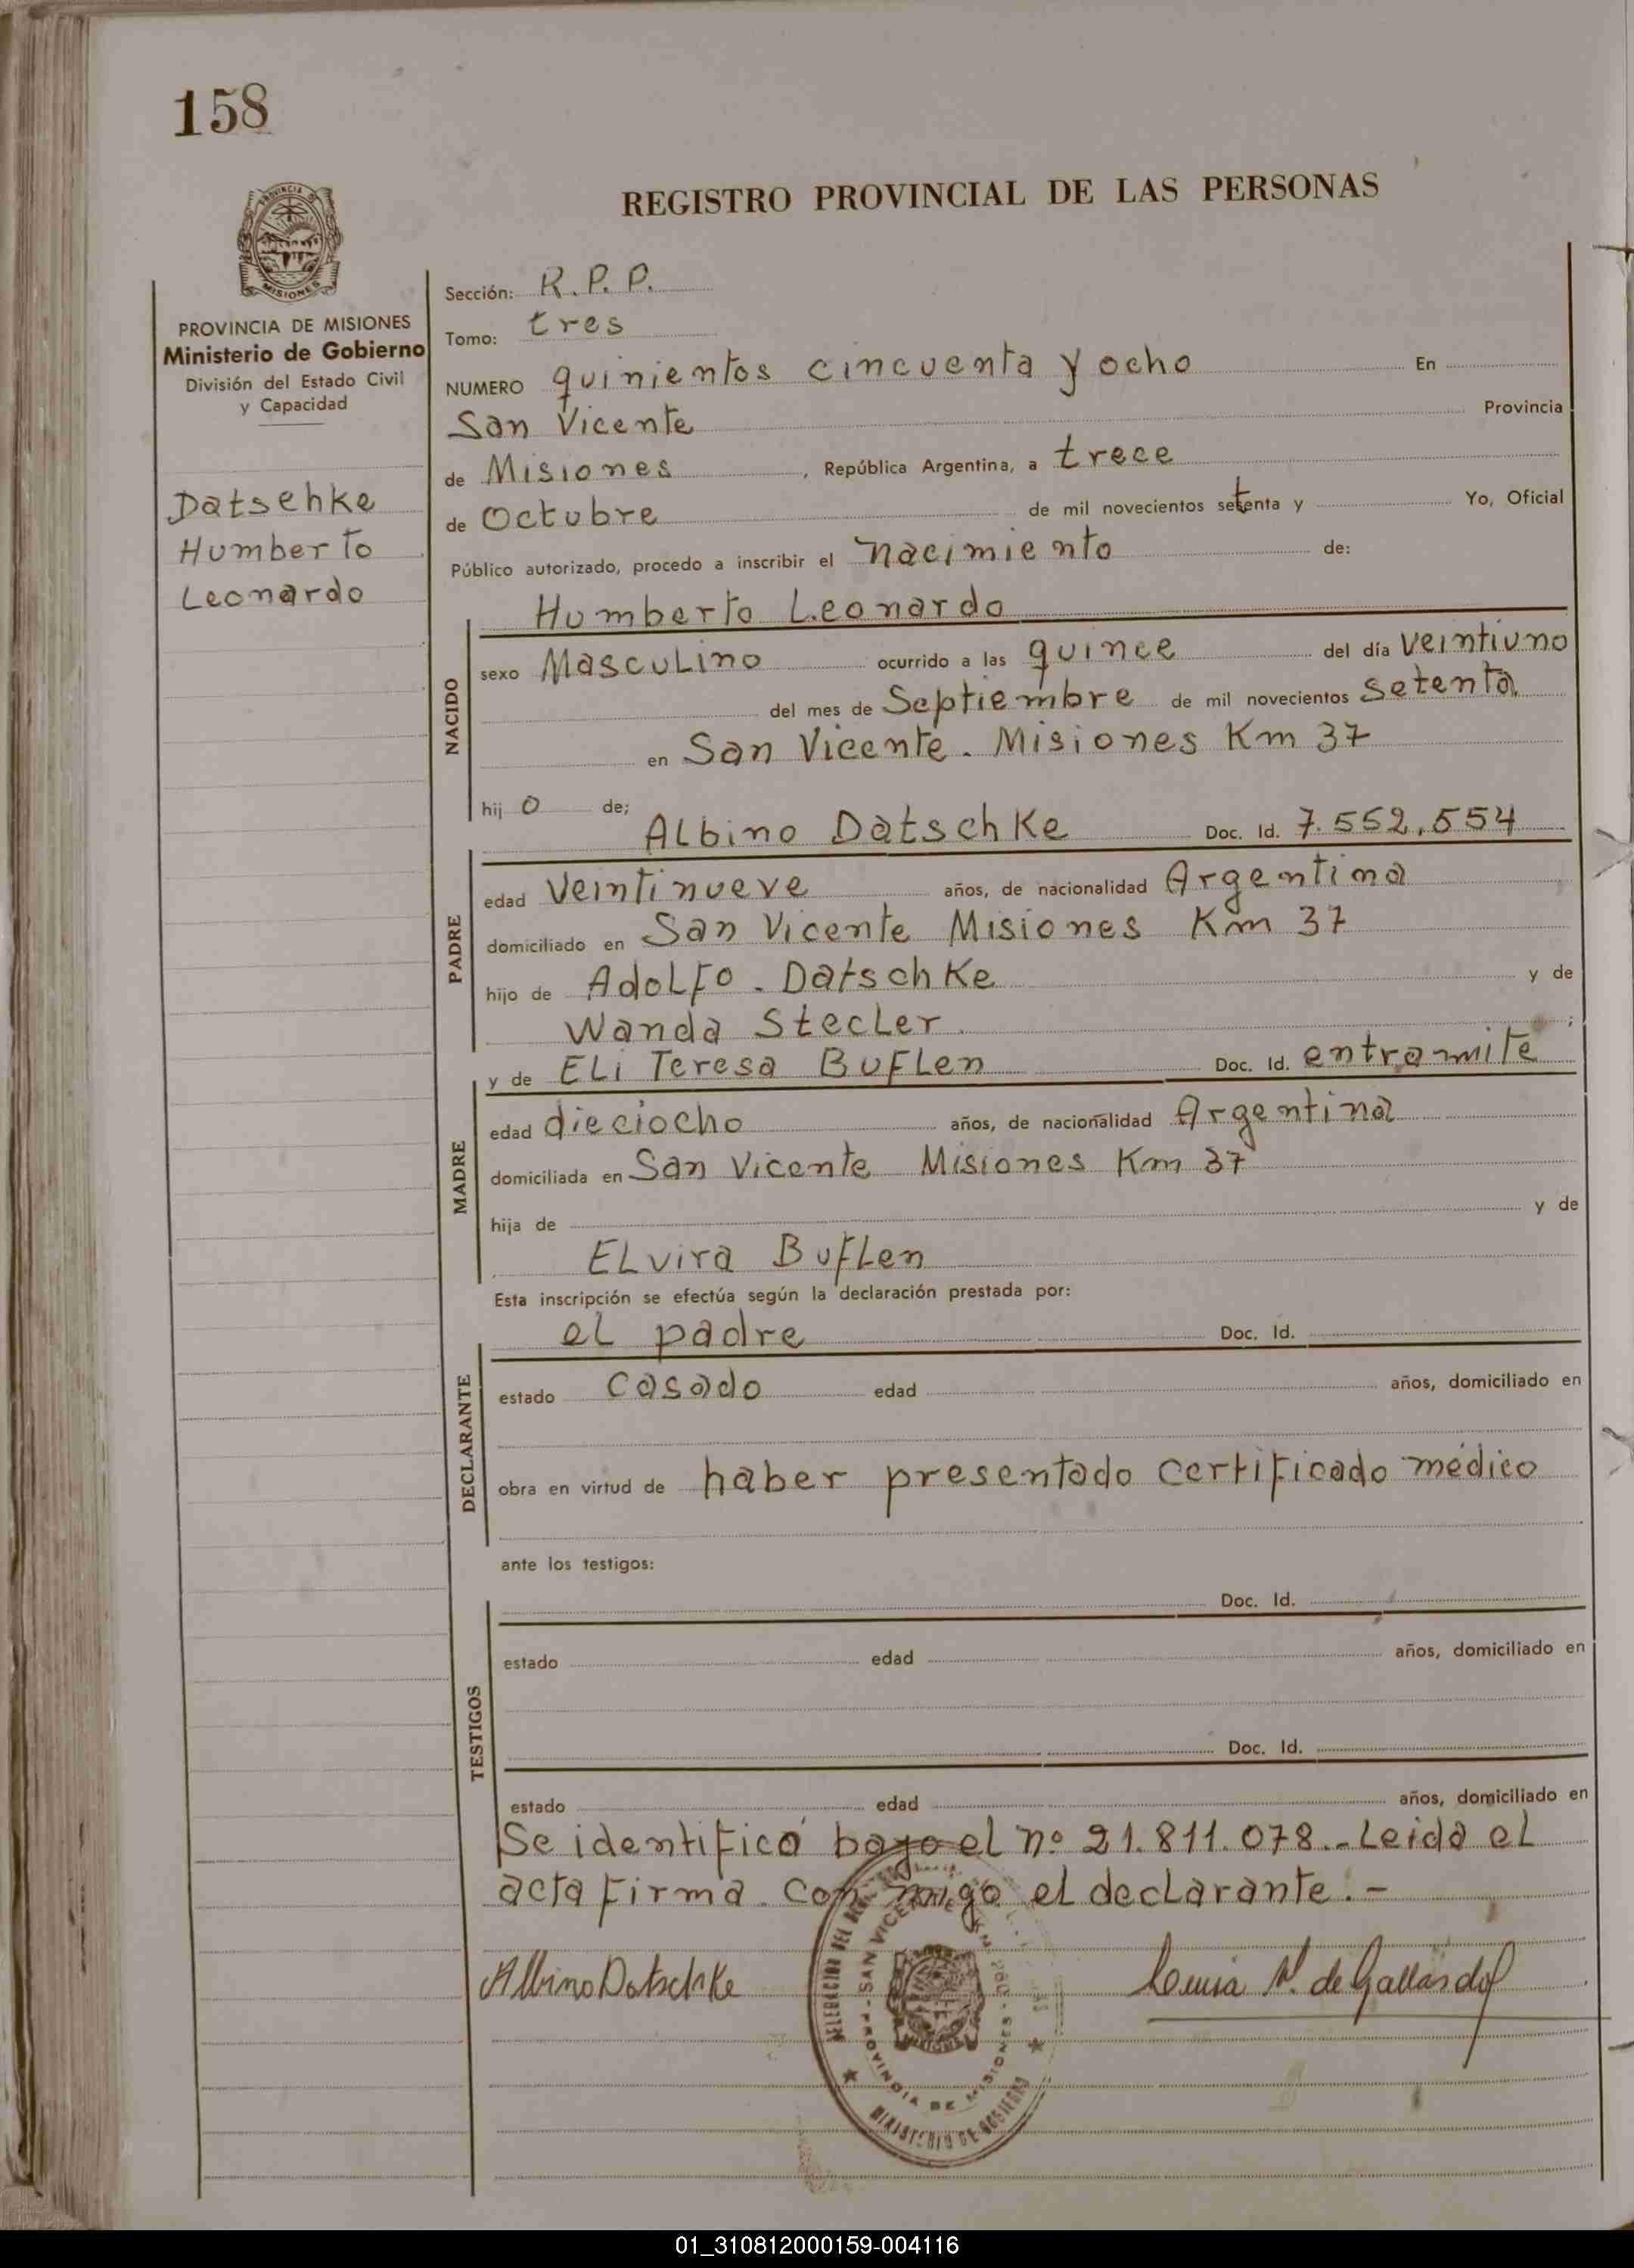 158
PROVINCIA DE
MISIONES
REGISTRO PROVINCIAL DE LAS PERSONAS
PROVINCIA DE MISIONES
Ministerio de Gobierno
División del Estado Civil
y Capacidad
Datschke
Humberto
Leonardo
Sección: R.P.P.
Tomo: tres
NUMERO quinientos cincuenta y ocho En
San Vicente Provincia
de Misiones, República Argentina, a trece
de Octubre de mil novecientos setenta y Yo, Oficial
Público autorizado, procedo a inscribir el nacimiento de:
Humberto Leonardo
NACIDO
sexo Masculino ocurrido a las quince del día veintiuno
del mes de Septiembre de mil novecientos setenta
en San Vicente. Misiones Km 37
hijo de;
Albino Datschke Doc. Id. 7.552.554
PADRE
edad Veintinueve años, de nacionalidad Argentina
domiciliado en San Vicente Misiones Km 37
hijo de Adolfo. Datschke y de
Wanda Stecler.;
y de Eli Teresa Buflen Doc. Id. entramite
MADRE
edad dieciocho años, de nacionalidad Argentina
domiciliada en San Vicente Misiones Km 37
hija de y de
Elvira Buflen
Esta inscripción se efectúa según la declaración prestada por:
el padre Doc. Id.
DECLARANTE
estado Casado edad años, domiciliado en
obra en virtud de haber presentado certificado médico
ante los testigos:
Doc. Id.
TESTIGOS
estado edad años, domiciliado en
Doc. Id.
estado edad años, domiciliado en
Se identificó bajo el nº 21.811.078.- Leida el
acta firma conmigo el declarante.-
Albino Datschke
de Gallardo
DELEGACION DEL
SAN VICENTE
PROVINCIA DE MISIONES
MINISTERIO DE GOBIERNO
01_310812000159-004116